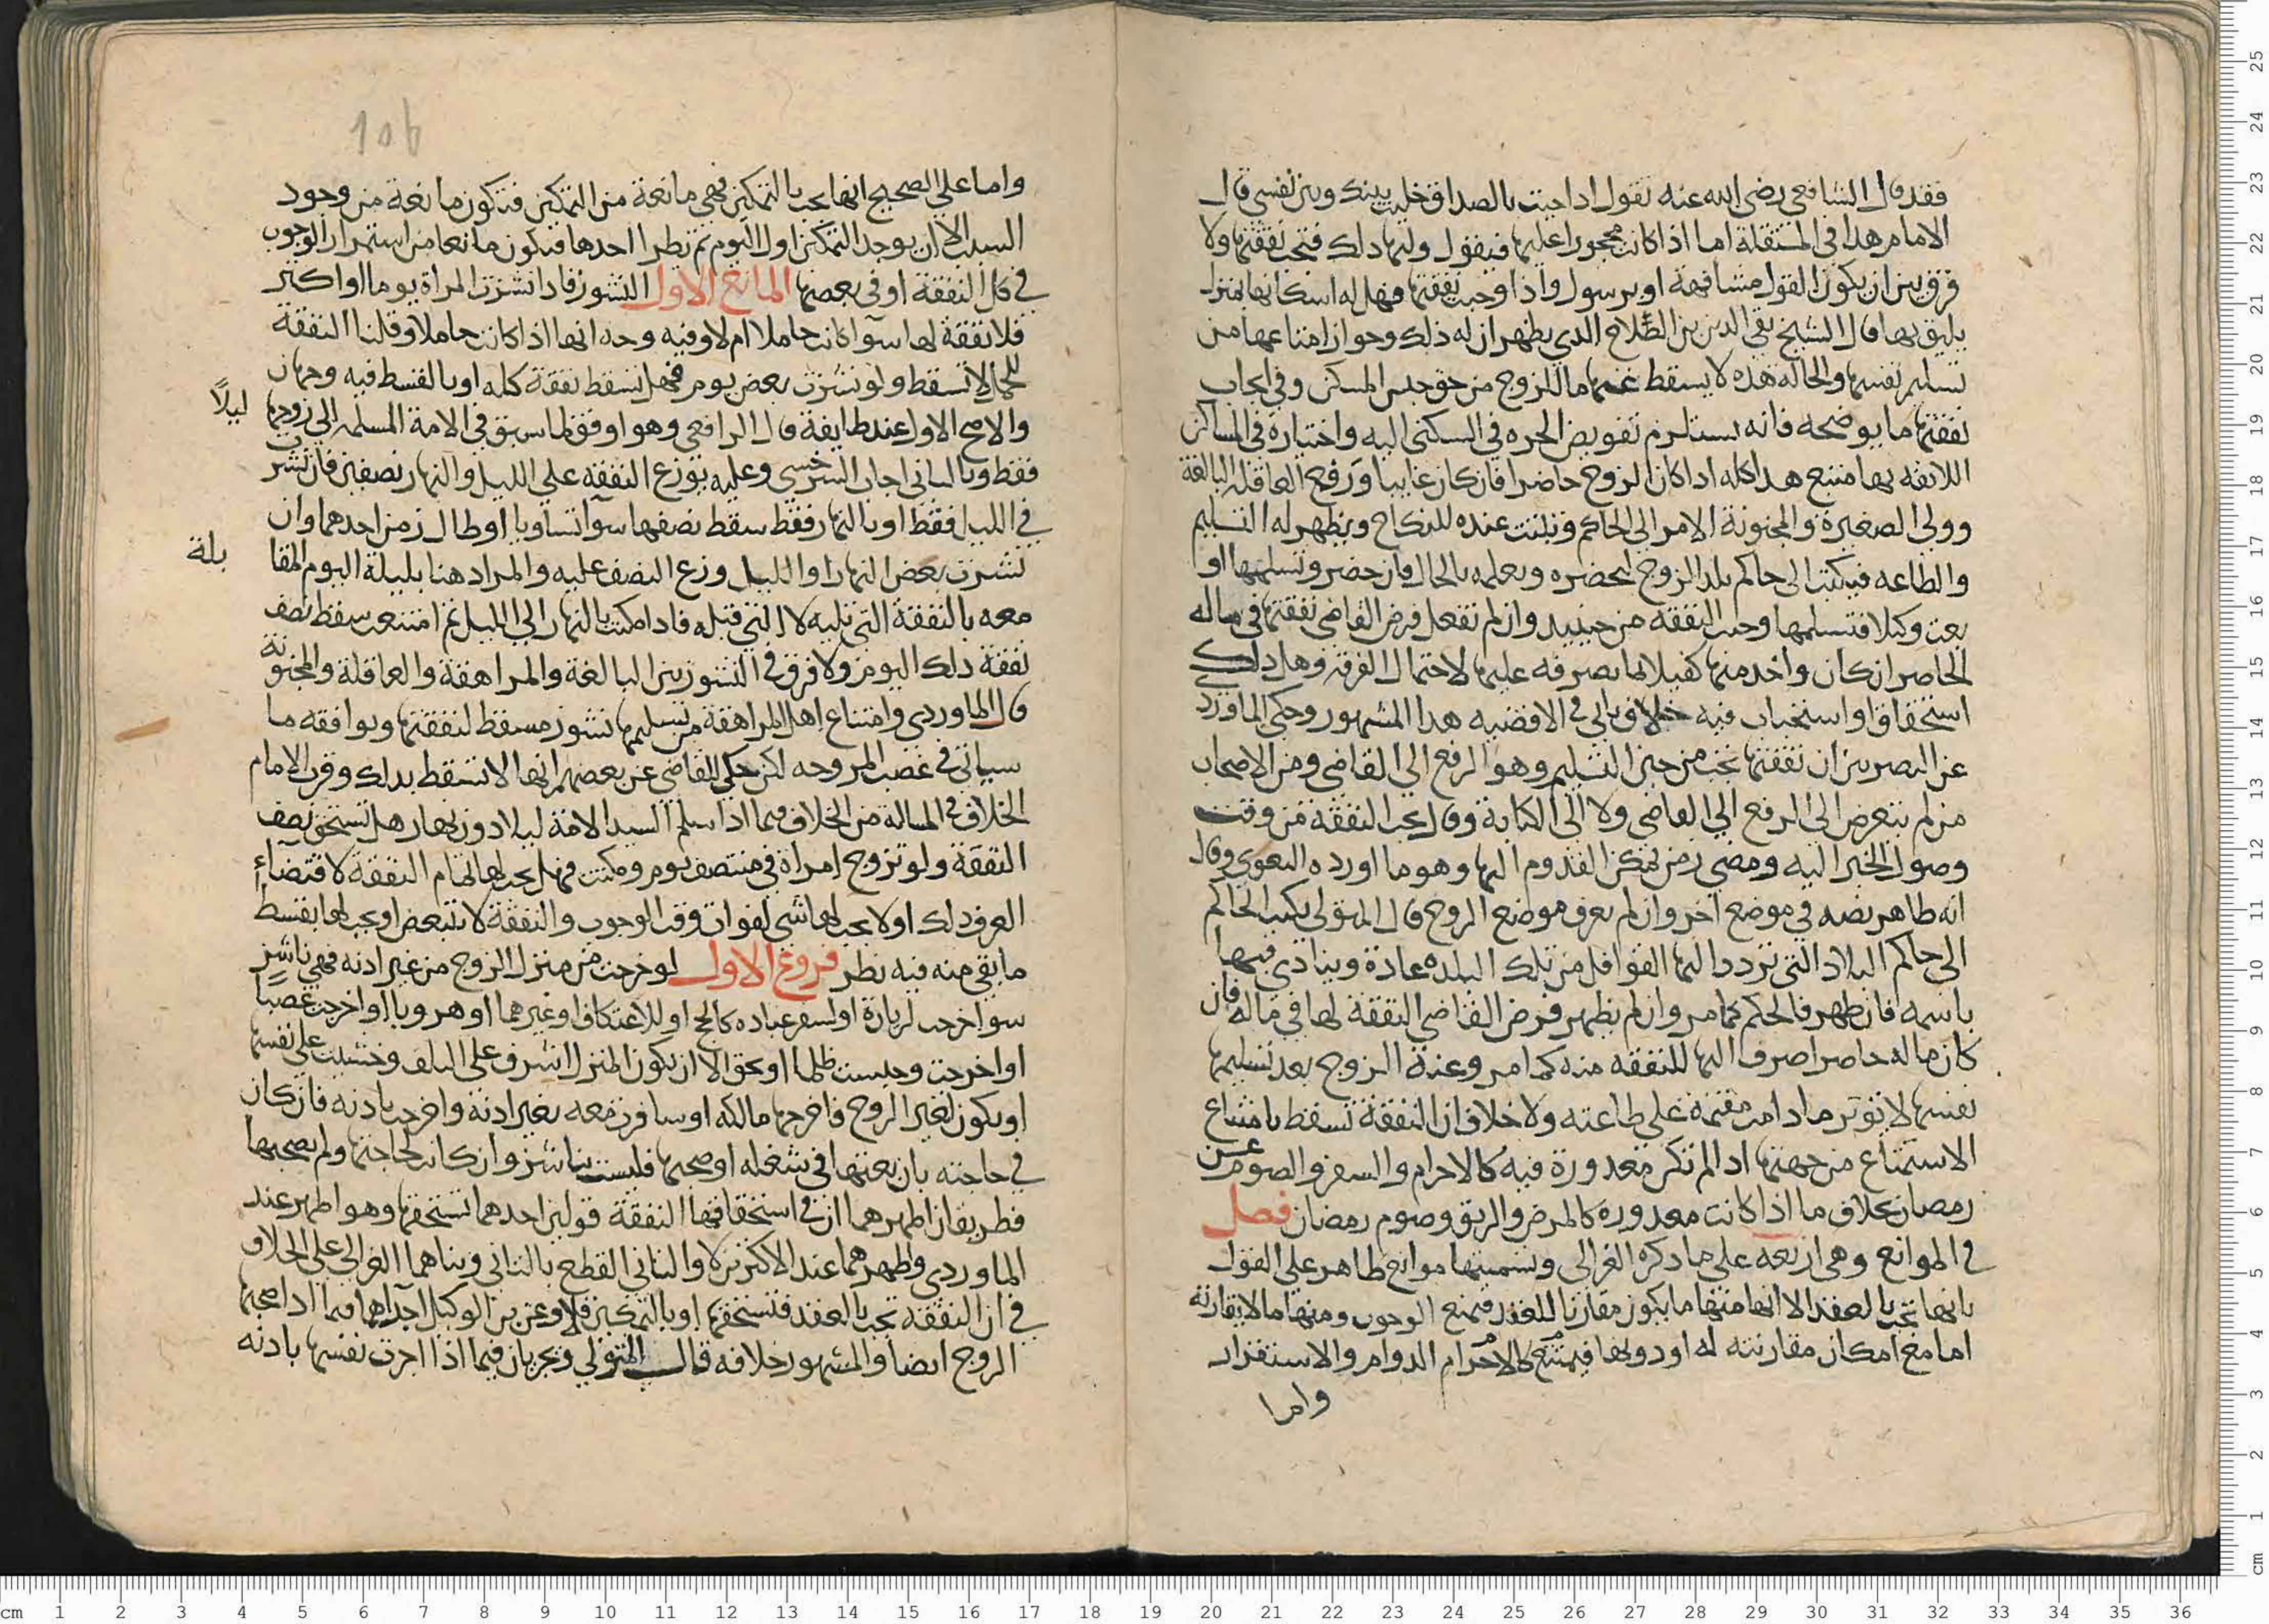 فقد قال الشافعي رضي الله عنه تقول اذا جيت بالصداق خليت بينك وبين نفسي قال
الامام هذا في المستقلة اما اذا كانت محجورا عليها فيقول وليها ذلك فتجب نفقتها ولا
فرق بين ان يكون القول مشافهة او برسول واذا وجبت نفقتها فهل له اسكانها بمنزل
يليق بها قال الشيخ تقي الدين بن الصلاح الذي يظهر ان له ذلك وجواز امتناعها من
تسليم نفسها والحالة هذه لا يسقط عنها ما للزوج من حق حبس المسكن وفي ايجاب
نفقتها ما يوضحه فانه يستلزم تفويض الحره في السكنى اليه واختيارة في المساكن
اللائقه بها متبع هذا كله اذا كان الزوج حاضرا فان كان غايبا ورفع العاقلة البالغة
وولي الصغيرة والمجنونة الامر الى الحاكم وثبتت عنده النكاح ويظهر له التسليم
والطاعه فيكتب الى حاكم بلد الزوج ليحضره ويعلمه بالحال فان حضر وتسلمها او
بعث وكيلا فتسلمها وجبت النفقه من حينيد وان لم تفعل فرض القاضي نفقتها في ماله
الحاضر ان كان واخذ منها كفيلا لما يصرفه عليها لاحتمال الفرقة وهل ذلك
استحقاق او استحباب فيه خلاف ياتي في الاقضيه هذا المشهور وحكى الماوردي
عن البصريين ان نفقتها تجب من حين التسليم وهو الرفع الى القاضي ومن الاصحاب
من لم يتعرض الى الرفع الى القاضي ولا الى الكتابة وقال تجب النفقة من وقت
وصول الخبر اليه ومضى زمن يمكن القدوم اليها وهو ما اورده البغوي وقال
انه ظاهر نصه في موضع اخر وان لم يعرف موضع الزوج قال المتولي يكتب الحاكم
الى حاكم البلاد التي تردد اليها القوافل من تلك البلده عادة وينادي فيها
باسمه فان ظهر فالحكم كما مر وان لم يظهر فرض القاضي النفقة لها في ماله فان
كان ماله حاضرا صرف اليها للنفقه منه كما مر وعنة الزوج بعد تسليمها
نفسها لا تؤثر ما دامت مقيمة على طاعته ولا خلاف ان النفقة تسقط بامتناع
الاستمتاع من جهتها اذا لم تكن معذورة فيه كالاحرام والسفر والصوم عن
رمضان بخلاف ما اذا كانت معذورة كالمرض والرتق وصوم رمضان فصل
في الموانع وهي اربعه على ما ذكره الغزالي وتسميتها موانع ظاهر على القول
بانها تجب بالعقد الا انها منها ما يكون مقارنا للعقد فيمنع الوجوب ومنها ما لا يقارنه
اما مع امكان مقارنته له او دونها فيمنع كالاحرام الدوام والاستقرار
واما
106
واما على الصحيح انها تجب بالتمكين فهي مانعة من التمكين فتكون مانعة من وجود
السبب الا ان يوجد التمكين اول اليوم ثم تطرا احدها فيكون مانعا من استمرار الوجوب
في كل النفقة او في بعضها المانع الاول النشوز فاذا نشزت المراة يوما او اكثر
فلا نفقة لها سوا كانت حاملا ام لا وفيه وجه انها اذا كانت حاملا وقلنا النفقة
للحمل لا تسقط ولو نشزت بعض يوم فهل تسقط نفقة كله او بالقسط فيه وجهان
والاصح الاول عند طايفة قال الرافعي وهو اوفق لما سبق في الامة المسلمه الى زوجها ليلاً
فقط وبالثاني اجاب السرخسي وعليه توزع النفقه على الليل والنهار نصفين فان نشزت
في الليل فقط او بالنهار فقط سقط نصفها سوآ تساويا او طال زمن احدهما وان
نشزت بعض النهار او الليل وزع النصف عليه والمراد هنا بليلة اليوم المقا بلة
معه بالنفقة التي تليه لا التي قبله فاذا مكنت بالنهار الى الليل ثم امتنعت سقط نصف
نفقة ذلك اليوم ولا فرق في النشوز بين البالغة والمراهقة والعاقلة والمجنونة
قال الماوردي وامتناع اهل المراهقة من تسليمها نشوز مسقط لنفقتها ويوافقه ما
سياتي في غصب المزوجه لكن حكى القاضي عن بعضهم انها لا تسقط بذلك وقرب الامام
الخلاف في المسالة من الخلاف فيما اذا سلم السيد الامة ليلا دون نهار هل تستحق نصف
النفقة ولو تزوج امراة في منتصف يوم ومكنت فهل يجب لها تمام النفقة لاقتضاء
العرف ذلك او لا يجب لها شي لفوات وقت الوجوب والنفقة لا تتبعض او يجب لها بقسط
ما بقي منه فيه نظر فروع الاول لو خرجت من منزل الزوج من غير اذنه فهي ناشز
سوا خرجت لزيارة او لسفر عباده كالحج او للاعتكاف او غيرهما او هروبا او اخرجت غصبا
او اخرجت وحبست ظلما او بحق الا ان يكون المنزل اشرف على التلف وخشيت على نفسها
او يكون لغير الزوج فاخرجها مالكه او سافرت معه بغير اذنة واخرجت باذنه فان كان
في حاجته بان بعثها في شغله او صحبها فليست بناشز وان كانت لحاجتها ولم يصحبها
فطريقان اظهرهما ان في استحقاقها النفقة قولين احدهما تستحقها وهو اظهر عند
الماوردي واظهرهما عند الاكثرين لا والثاني القطع بالثاني وبناهما الغزالي على الخلاف
في ان النفقه تجب بالعقد فتستحقها او بالتمكين فلا وعن بن الوكيل اجراهما فيما اذا صحبها
الزوج ايضا والمشهور خلافه قال المتولي ويجريان فيما اذا اجرت نفسها باذنه